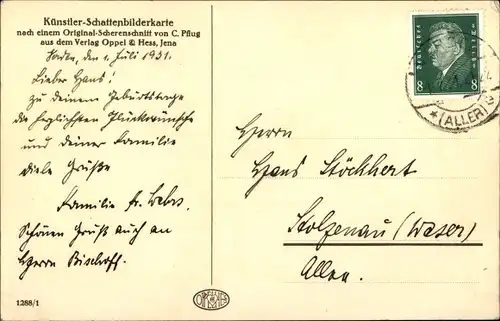 Künstler-Schattenbilderkarte
nach einem Original-Scherenschnitt von C. Pflug
aus dem Verlag Oppel & Hess, Jena
den 1. Juli 1931.
Lieber Hans!
Zu deinem Geburtstage
die herzlichsten Glückwünsche
und deiner Familie
viele Grüße
Familie Fr.
Schönen Gruß auch an
Herrn Bischoff.
1288/1
8 8
*(ALLER)
Herrn
Hans Stöckhert
Stolzenau (Weser)
Allee.